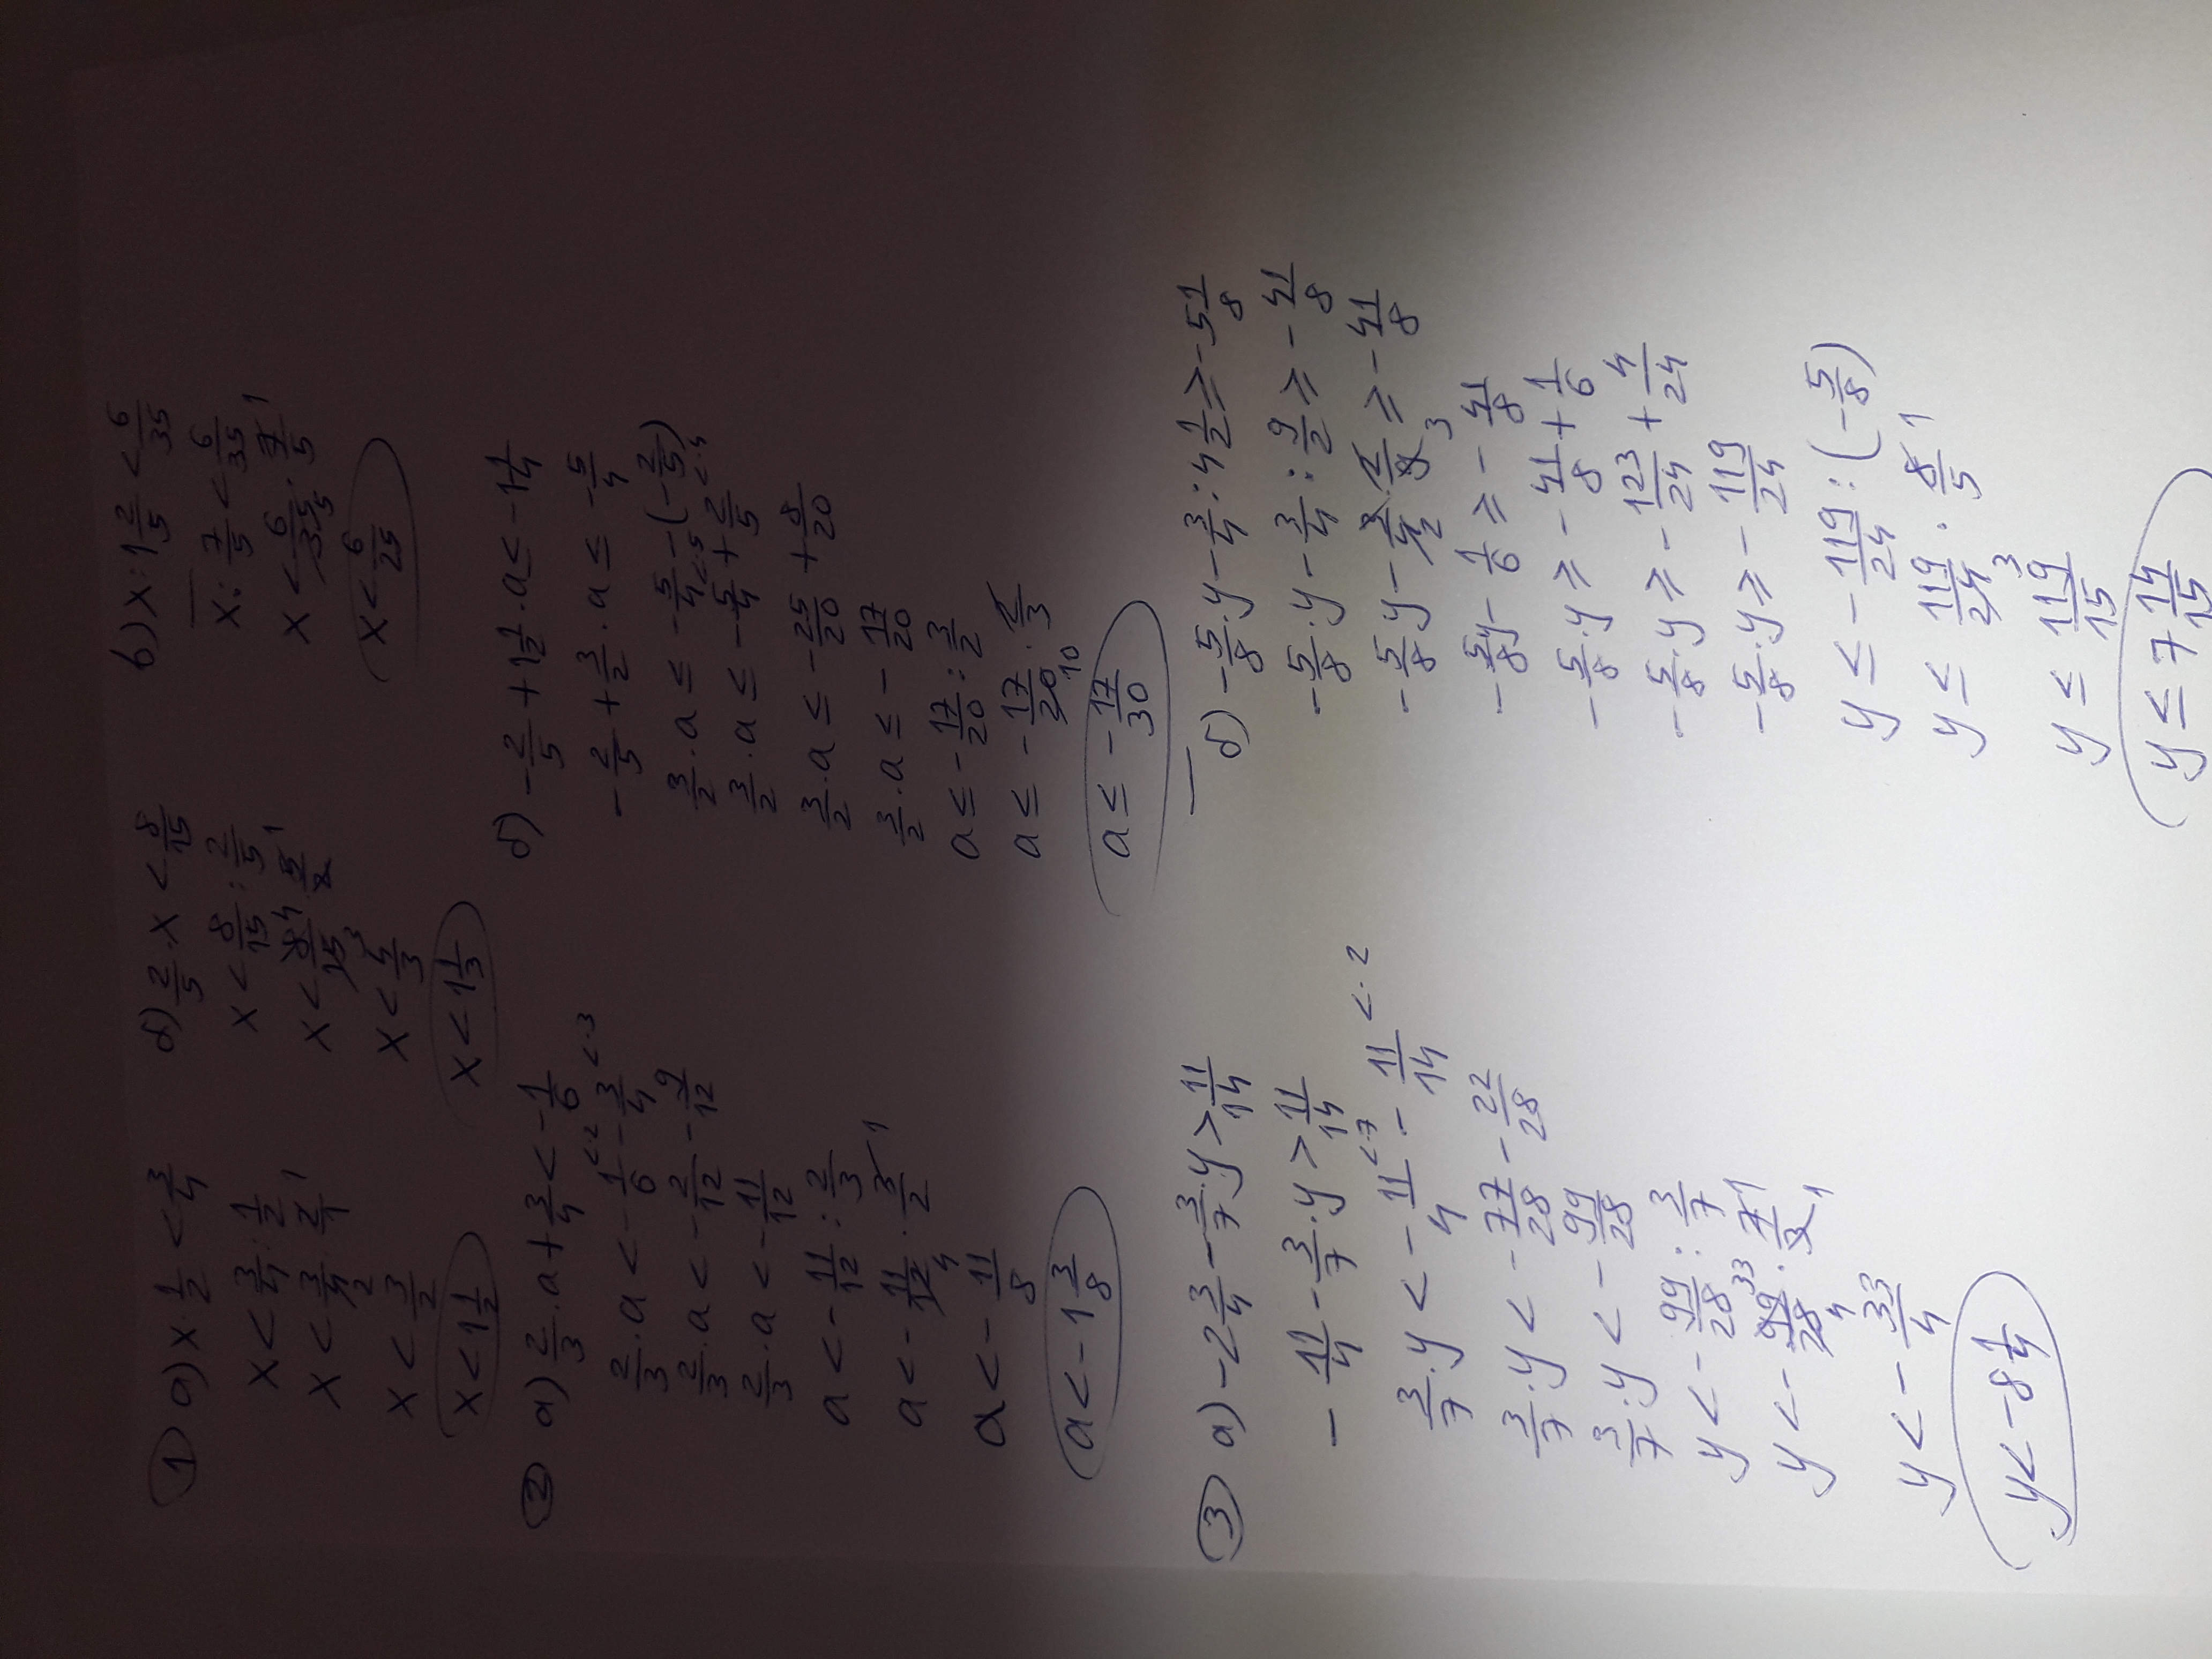 ① а) x · 1/2 < 3/4
x < 3/4 : 1/2
x < 3/4 2 · 2/1 1
x < 3/2
x < 1 1/2
б) 2/5 · x < 8/15
x < 8/15 : 2/5
x < 8/15 4 3 · 5/2 1
x < 4/3
x < 1 1/3
в) x : 1 2/5 < 6/35
x : 7/5 < 6/35
x < 6/35 5 · 7/5 1
x < 6/25
② а) 2/3 · a + 3/4 < - 1/6
2/3 · a < - 1/6 <·2 - 3/4 <·3
2/3 · a < - 2/12 - 9/12
2/3 · a < - 11/12
a < - 11/12 : 2/3
a < - 11/12 4 · 3/2 1
a < - 11/8
a < - 1 3/8
б) - 2/5 + 1 1/2 · a ≤ - 1 1/4
- 2/5 + 3/2 · a ≤ - 5/4
3/2 · a ≤ - 5/4 - (- 2/5)
3/2 · a ≤ - 5/4 <·5 + 2/5 <·4
3/2 · a ≤ - 25/20 + 8/20
3/2 · a ≤ - 17/20
a ≤ - 17/20 : 3/2
a ≤ - 17/20 10 · 2/3
a ≤ - 17/30
③ а) - 2 3/4 - 3/7 · y > 11/14
- 11/4 - 3/7 · y > 11/14
3/7 · y < - 11/4 <·7 - 11/14 <·2
3/7 · y < - 77/28 - 22/28
3/7 · y < - 99/28
y < - 99/28 : 3/7
y < - 99/28 33 4 · 7/3 1 1
y < - 33/4
y < - 8 1/4
б) - 5/8 · y - 3/4 : 4 1/2 ≥ - 5 1/8
- 5/8 · y - 3/4 : 9/2 ≥ - 41/8
- 5/8 · y - 3/4 2 · 2/9 3 ≥ - 41/8
- 5/8 y - 1/6 ≥ - 41/8
- 5/8 · y ≥ - 41/8 + 1/6
- 5/8 · y ≥ - 123/24 + 4/24
- 5/8 · y ≥ - 119/24
y ≤ - 119/24 : (- 5/8)
y ≤ 119/24 3 · 8/5 1
y ≤ 119/15
y ≤ 7 14/15